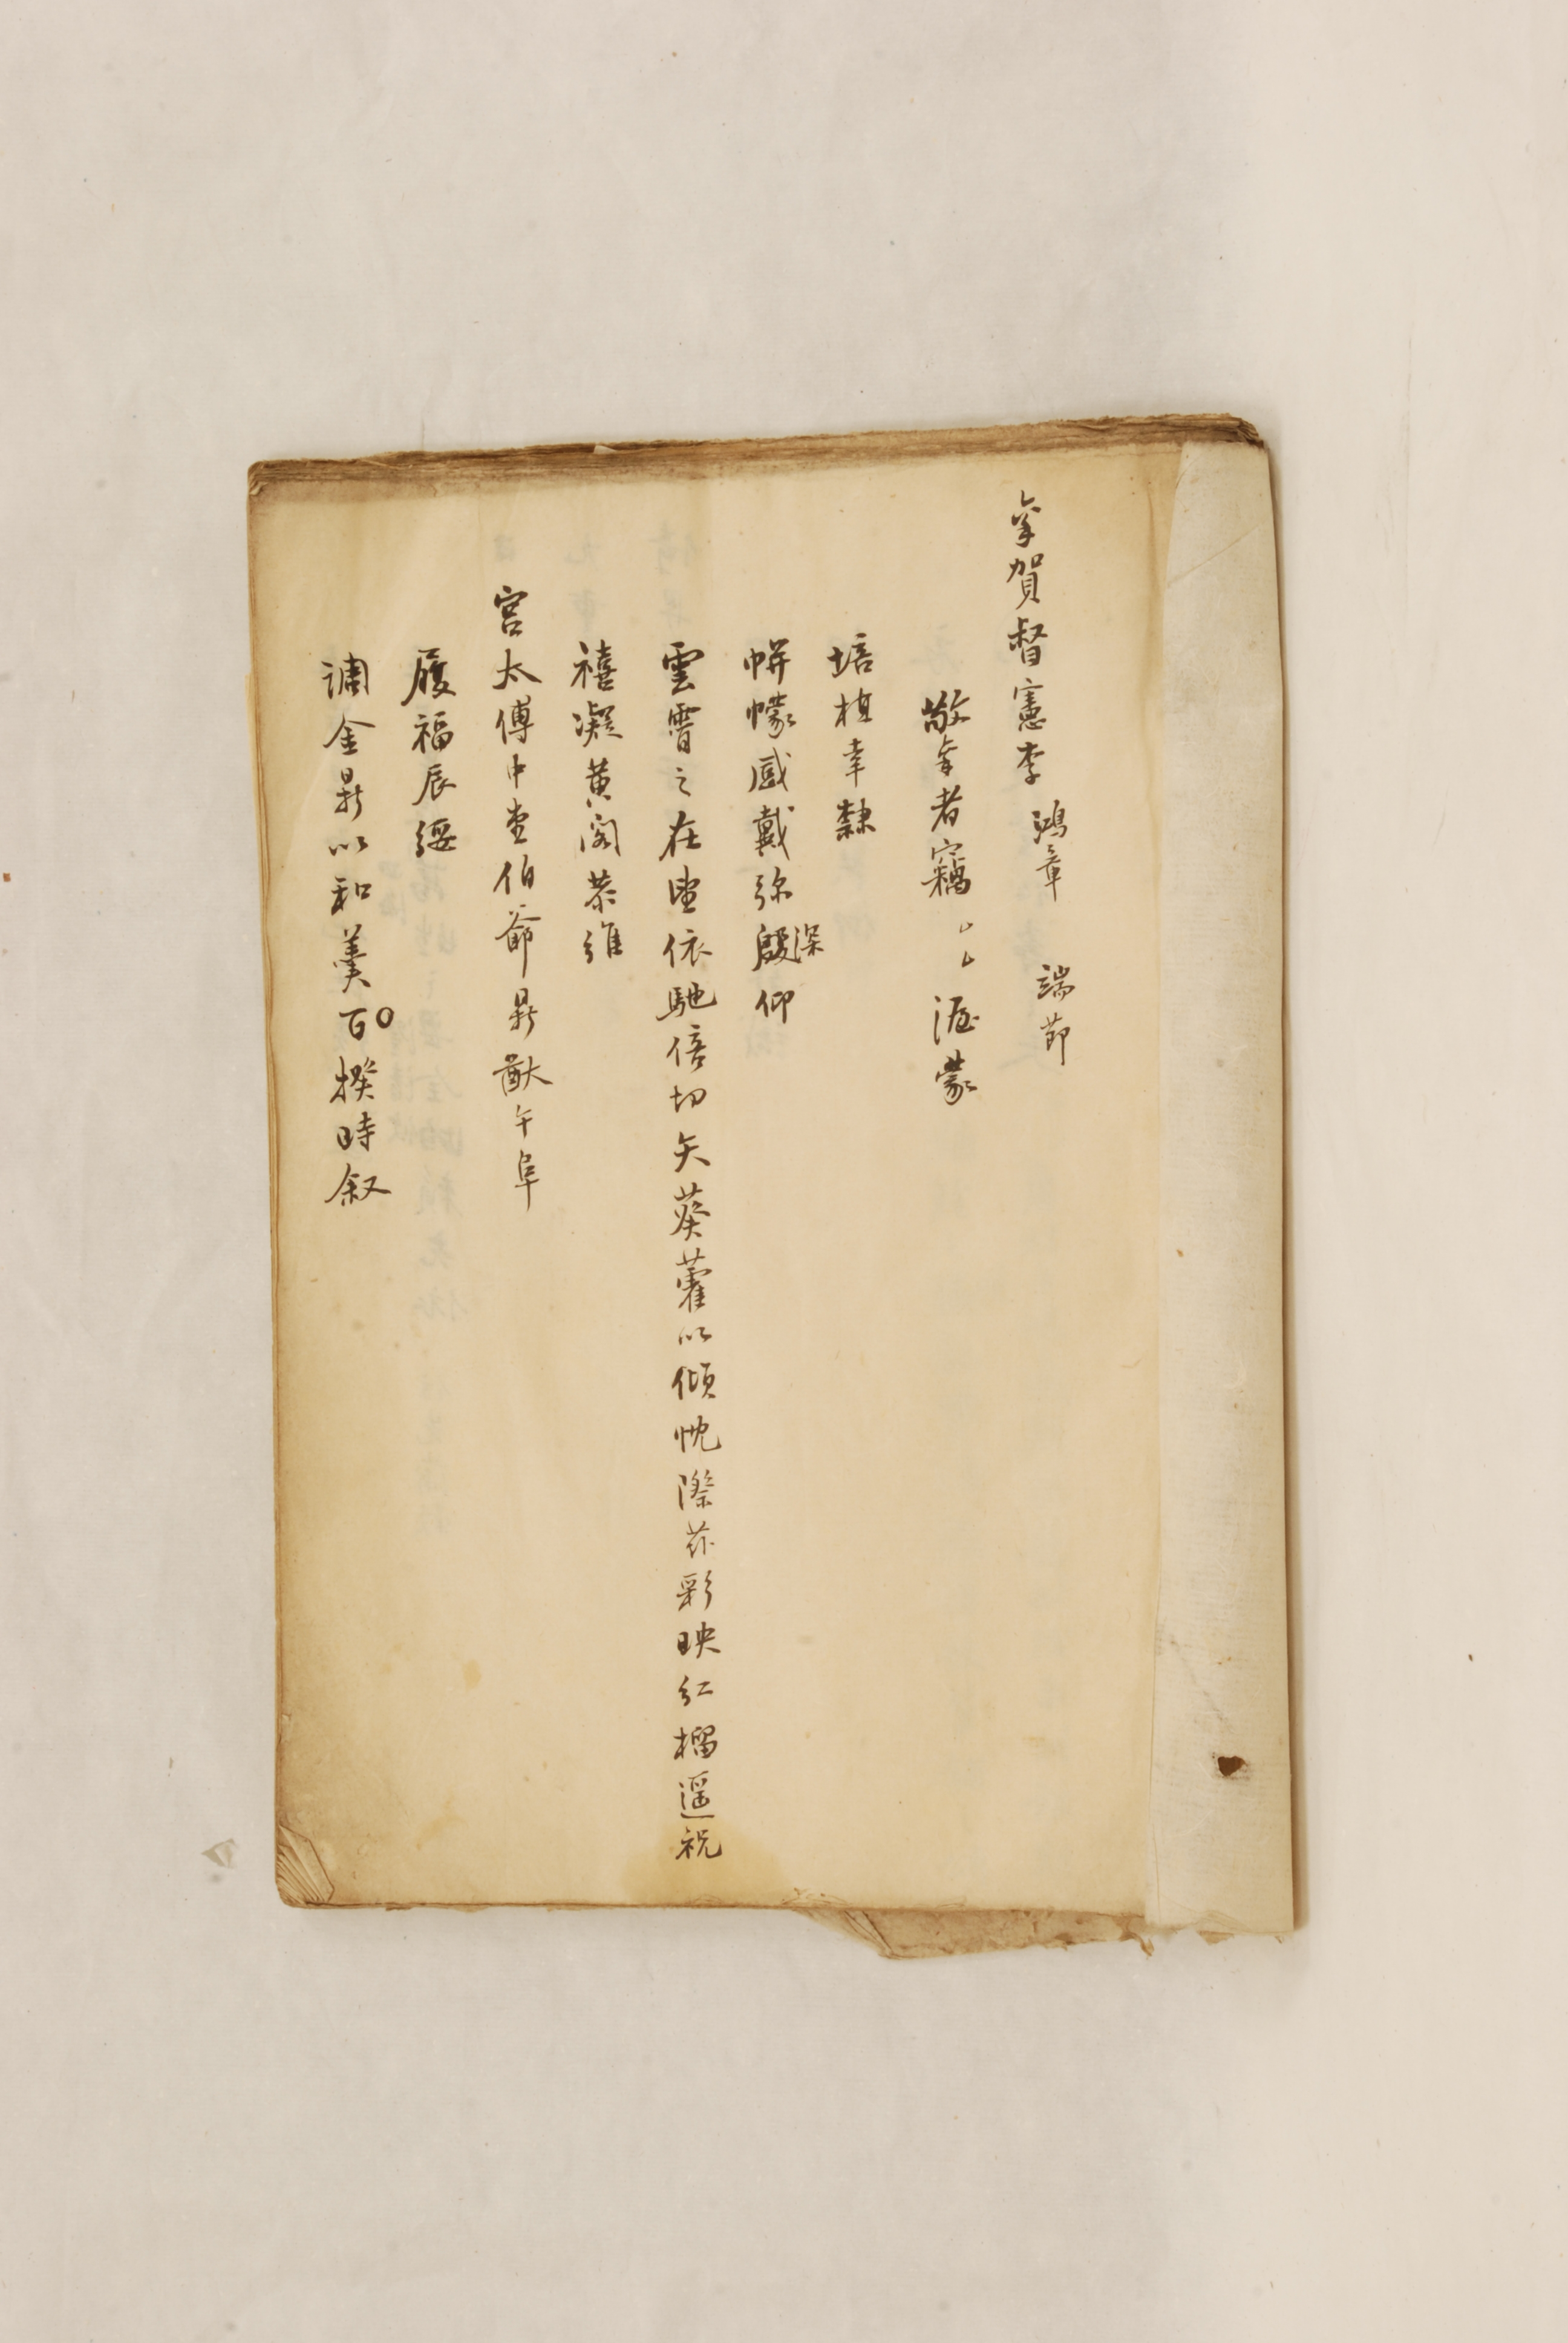 稟賀督憲李鴻章端節
敬稟者竊〻〻渥蒙
培植幸隸
帡幪感戴弥殷深仰
雲霄之在望依馳倍切矢葵藿以傾忱際茲彩映紅榴遥祝
禧凝黄閣恭維
宮太傅中堂伯爺鼎猷午阜
履福辰綏
調金鼎以和羹百揆時叙